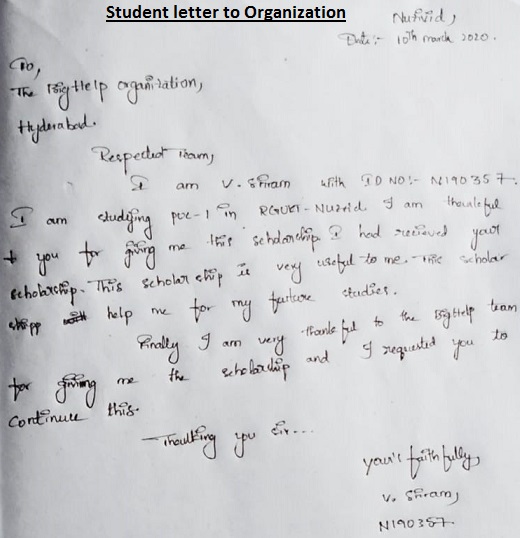 Student letter to Organization
Nuzivid,
Date:- 10th march 2020.
To,
The BigHelp organization,
Hyderabad.
Respected Team,
I am V. Sriram with ID NO:- N190357.
I am studying puc-1 in RGUKT-Nuzvid. I am thankeful
to you for giving me this scholarship I had recieved your
scholarship. This scholar ship is very useful to me. The scholar
shipp help me for my furture studies.
Finally I am very thankeful to the BigHelp team
for giving me the scholarship and I requested you to
continue this.
Thanking you sir...
your's faithfully,
V. Sriram,
N190357.